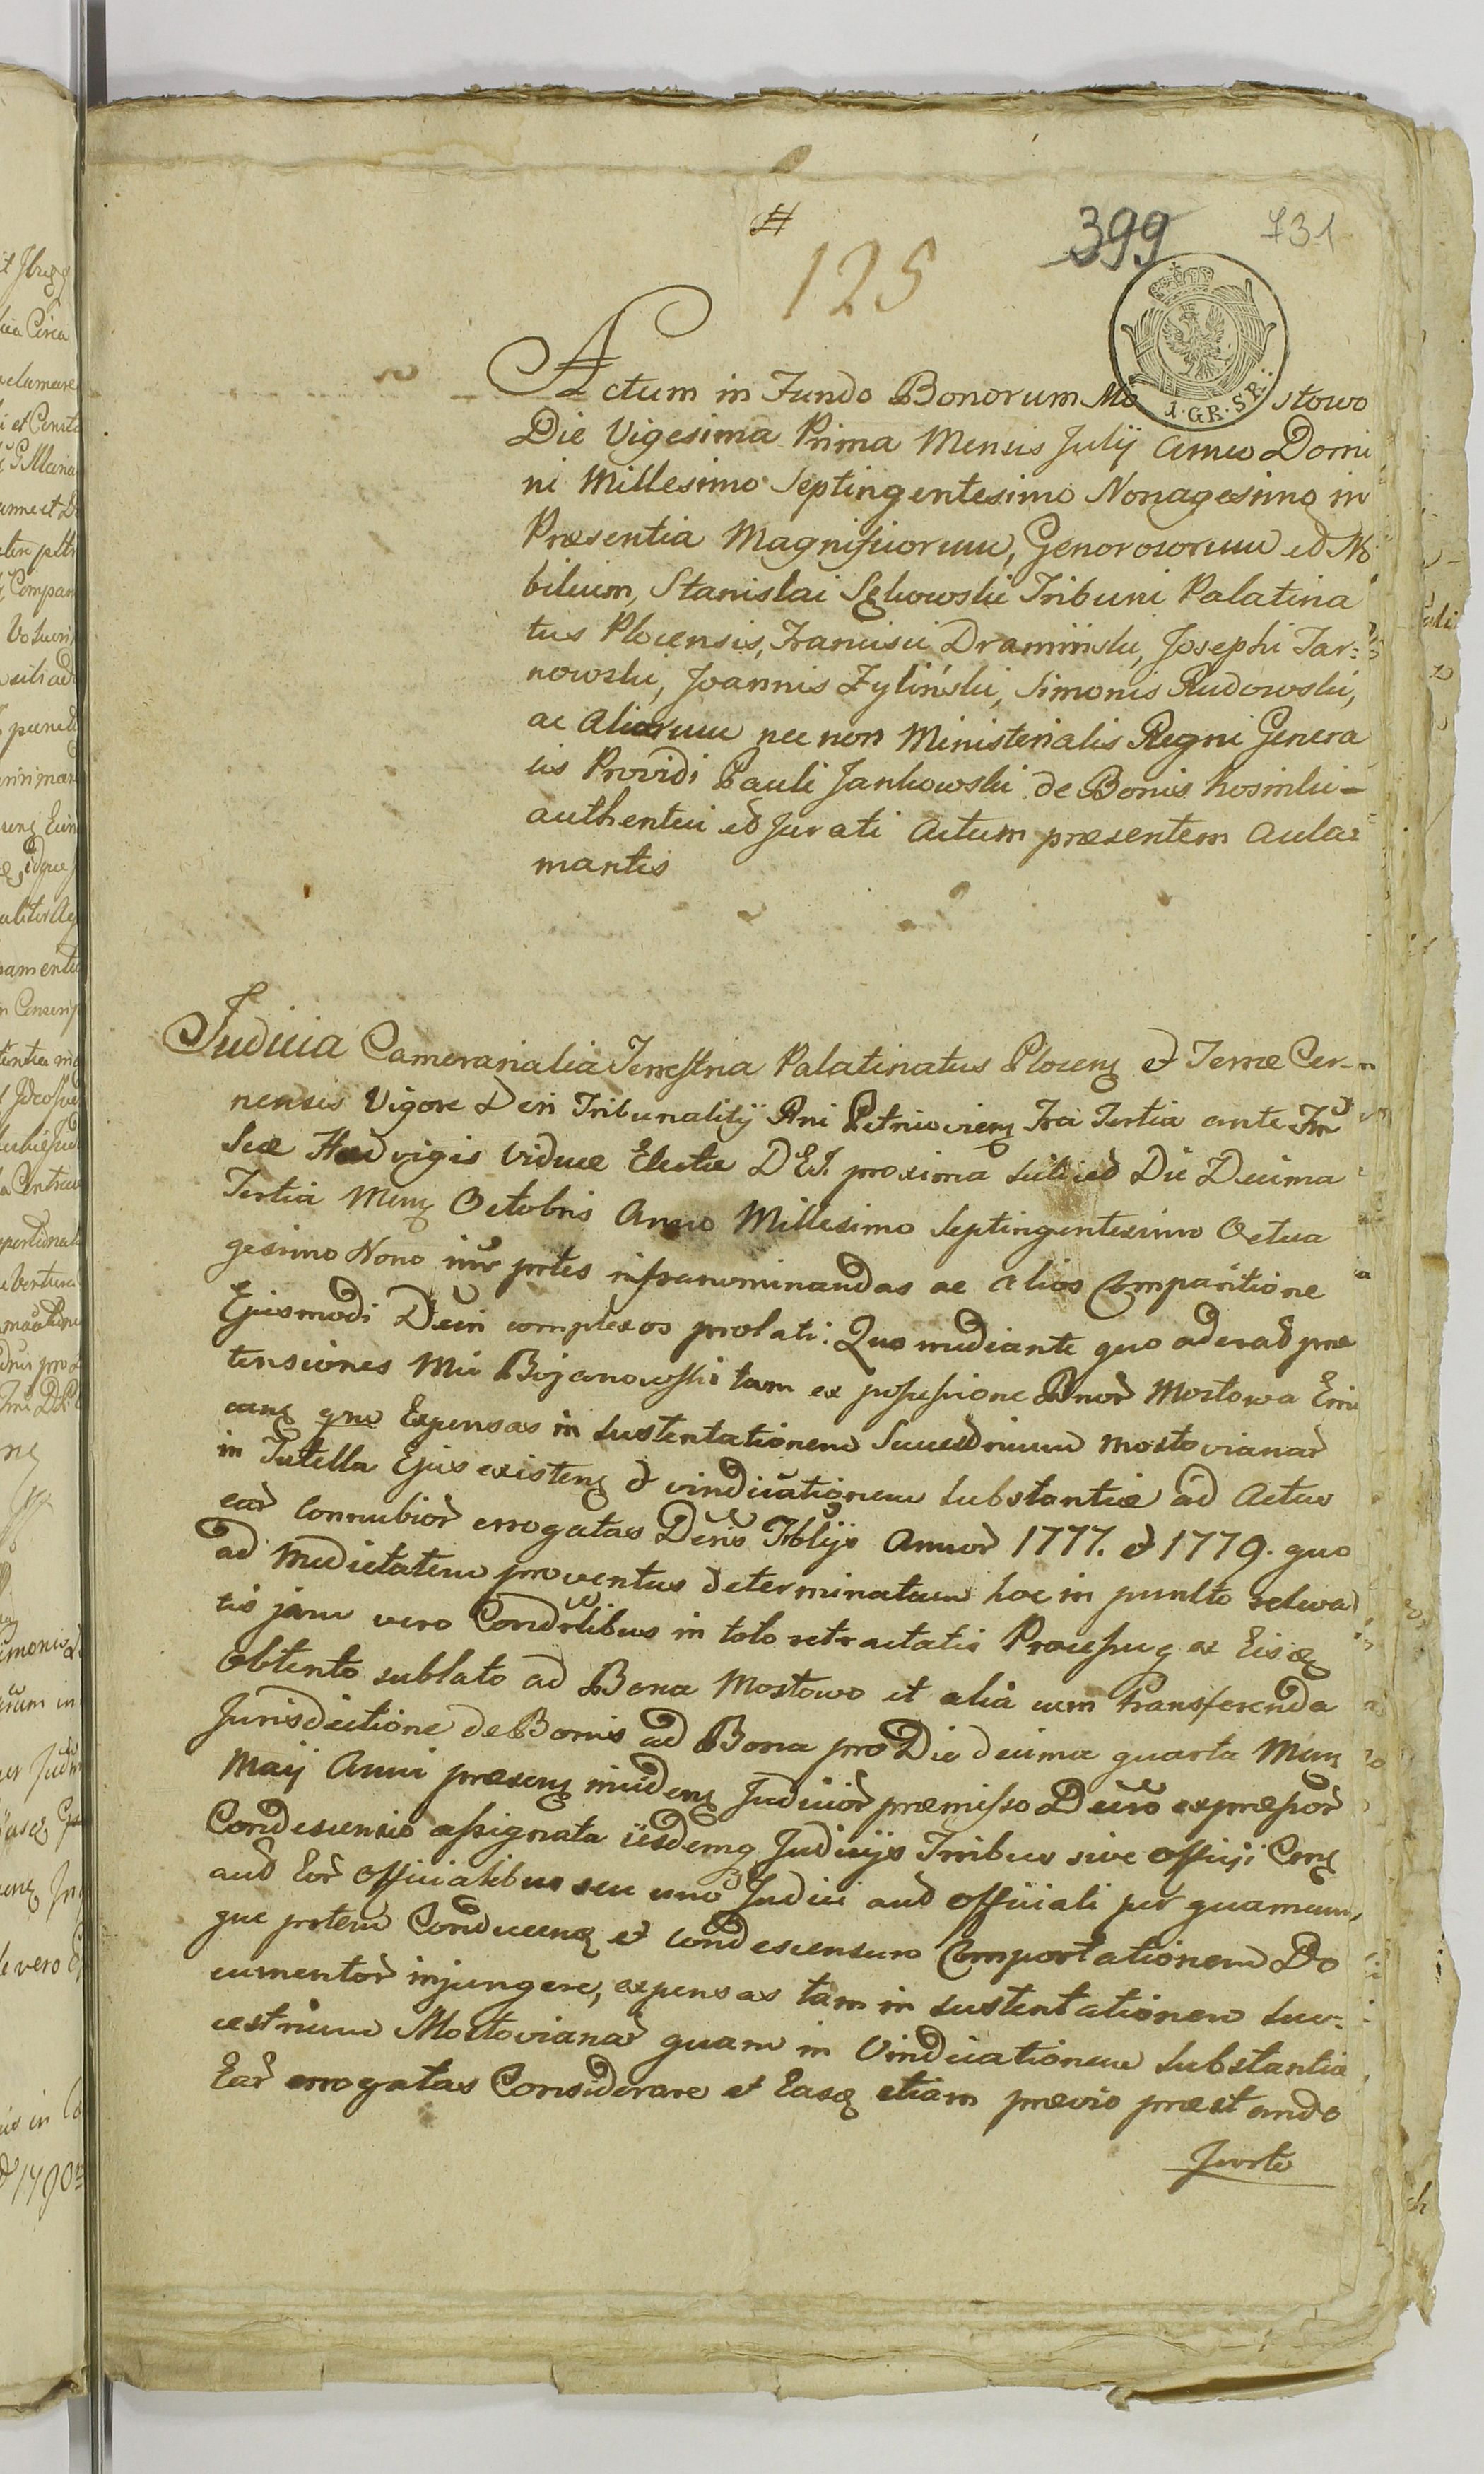 #
125
399
731
1. GR. SR.
Actum in Fundo Bonorum Mostowo
Die Vigesima Prima Mensis Julÿ Anno Domi
ni Millesimo Septingentesimo Nonagesimo in
Præsentia Magnificorum, Generosorum et No
bilium, Stanislai Sękowski Tribuni Palatina
tus Plocensis, Francisci Dramiński, Josephi Tar=
nowski, Joannis Żyliński, Simonis Rudowski,
ac Aliorum nec non Ministerialis Regni Genera
lis Providi Pauli Jankowski de Bonis
authentici et Jurati Actum præsentem Acla=
mantis
Judicia Cameraria­lia Terrestria Palatinatus Plocenʒ et Terræ Cer-
nensis Vigore Dcri Tribunalitÿ Rni Petricovienʒ Fra Tertia ante Fm
Scæ Hedvigis Viduæ Electæ D E J. proxima scilicet Die Decima
Tertia Menʒ Octobris Anno Millesimo Septingentesimo Octua
gesimo Nono inter prtes infranominandas ac alios Comparitione
Ejusmodi Dcri complexos prolati: Quo mediante quo aderat præ
tensiones Mci Bojanowski tam ex possessione Bnor Mostowa
qm Expensas in Sustentationem Mostovianar
in Tutella Ejus existenʒ et vindicationem Substantiæ ad Actus
ear Connubior errogatas Dcris Trblÿs Annor 1777. et 1779. quo
ad Medietatem proventus determinatam hoc in puncto
tis jam vero Condrtibus in toto retractatis ex
Obtento sublato ad Bona Mostowo et alia cum transferenda
Jurisdictione de Bonis ad Bona pro Die decima quarta Menʒ
Maÿ Anni præsenʒ Judicior præmisso Decro expressor
Condescensio assignata iisdemq Judicÿs Tribus sive Officÿ
aut Eor Officialibus seu uno Judici aut Officiali per quamcun,
que prtem Conducenʒ et condescensuro Comportationem Do
cumentor injungere, expensas tam in sustentationem Suc=
cestricum Mostovianar quam in Vindicationem Substantiæ
Ear errogatas Considerare et Easq etiam prævio præstando
Jurto